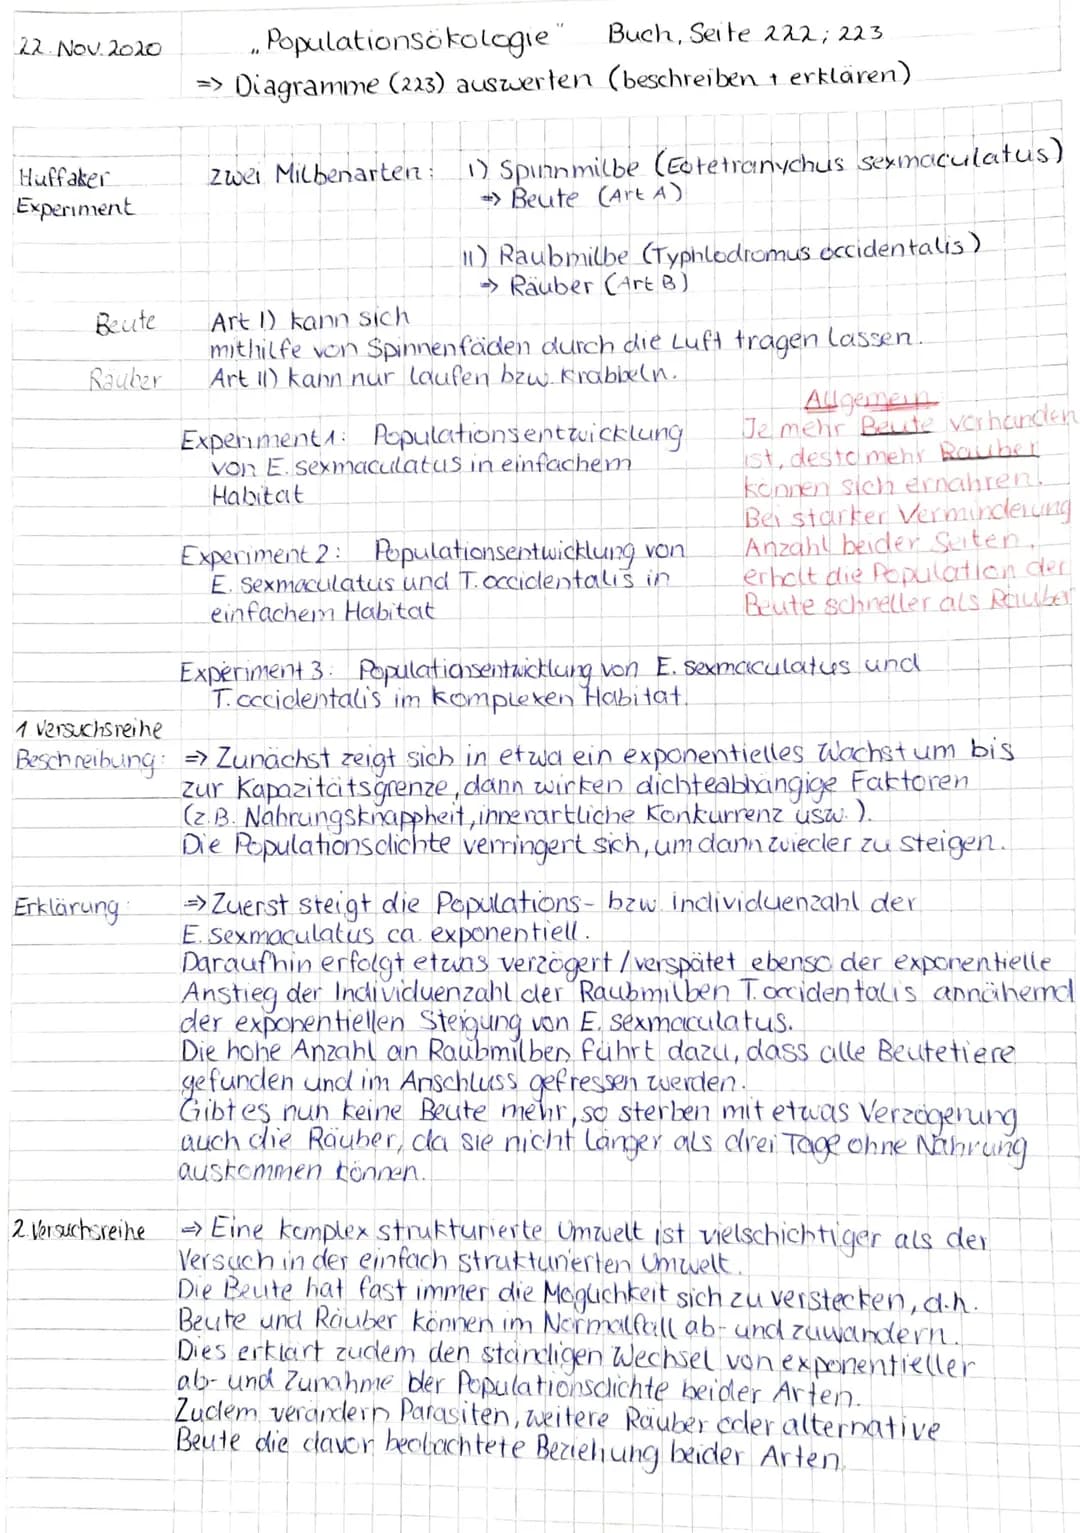 22. Nov. 2020
„Populationsökologie" Buch, Seite 222; 223
=> Diagramme (223) auswerten (beschreiben + erklären)
Huffaker
Experiment
zwei Milbenarten: I) Spinnmilbe (Eotetranychus sexmaculatus)
=> Beute (Art A)
II) Raubmilbe (Typhlodromus occidentalis)
=> Räuber (Art B)
Beute Art I) kann sich
mithilfe von Spinnenfäden durch die Luft tragen lassen.
Räuber Art II) kann nur laufen bzw. Krabbeln.
Experiment 1: Populationsentwicklung
von E. sexmaculatus in einfachem
Habitat
Experiment 2: Populationsentwicklung von
E. sexmaculatus und T. occidentalis in
einfachem Habitat
Allgemein
Je mehr Beute vorhanden
ist, desto mehr Räuber
können sich ernähren.
Bei starker Verminderung
Anzahl beider Seiten,
erholt die Population der
Beute schneller als Räuber
Experiment 3: Populationsentwicklung von E. sexmaculatus und
T. occidentalis im komplexen Habitat.
1 Versuchsreihe
Beschreibung: => Zunächst zeigt sich in etwa ein exponentielles Wachstum bis
zur Kapazitätsgrenze, dann wirken dichteabhängige Faktoren
(z.B. Nahrungsknappheit, innerartliche Konkurrenz usw.).
Die Populationsdichte verringert sich, um dann wieder zu steigen.
Erklärung: => Zuerst steigt die Populations- bzw. individuenzahl der
E. sexmaculatus ca. exponentiell.
Daraufhin erfolgt etwas verzögert / verspätet ebenso der exponentielle
Anstieg der Individuenzahl der Raubmilben T. occidentalis annähernd
der exponentiellen Steigung von E. sexmaculatus.
Die hohe Anzahl an Raubmilben führt dazu, dass alle Beutetiere
gefunden und im Anschluss gefressen werden.
Gibt es nun keine Beute mehr, so sterben mit etwas Verzögerung
auch die Räuber, da sie nicht länger als drei Tage ohne Nahrung
auskommen können.
2. Versuchsreihe => Eine komplex strukturierte Umwelt ist vielschichtiger als der
Versuch in der einfach strukturierten Umwelt.
Die Beute hat fast immer die Möglichkeit sich zu verstecken, d.h.
Beute und Räuber können im Normalfall ab- und zuwandern.
Dies erklärt zudem den ständigen Wechsel von exponentieller
ab- und Zunahme der Populationsdichte beider Arten.
Zudem verändern Parasiten, weitere Räuber oder alternative
Beute die davor beobachtete Beziehung beider Arten.